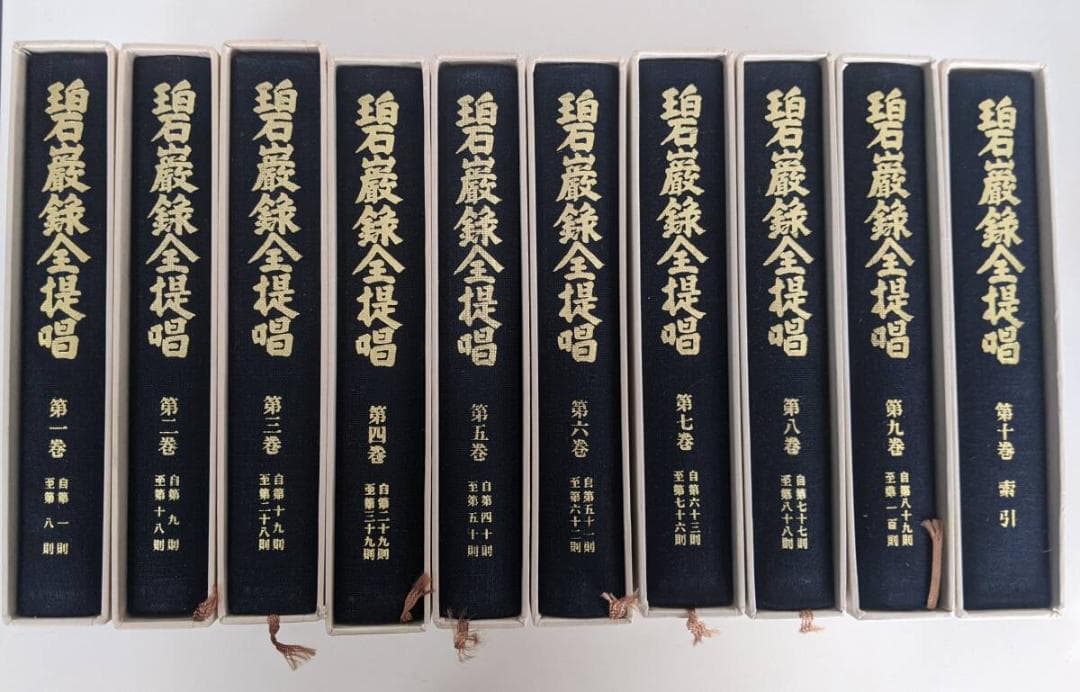 碧巌録全提唱
第一巻
自第一則
至第八則
碧巌録全提唱
第二巻
自第九則
至第十八則
碧巌録全提唱
第三巻
自第十九則
至第二十八則
碧巌録全提唱
第四巻
自第二十九則
至第三十九則
碧巌録全提唱
第五巻
自第四十則
至第五十則
碧巌録全提唱
第六巻
自第五十一則
至第六十二則
碧巌録全提唱
第七巻
自第六十三則
至第七十六則
碧巌録全提唱
第八巻
自第七十七則
至第八十八則
碧巌録全提唱
第九巻
自第八十九則
至第一百則
碧巌録全提唱
第十巻
索引